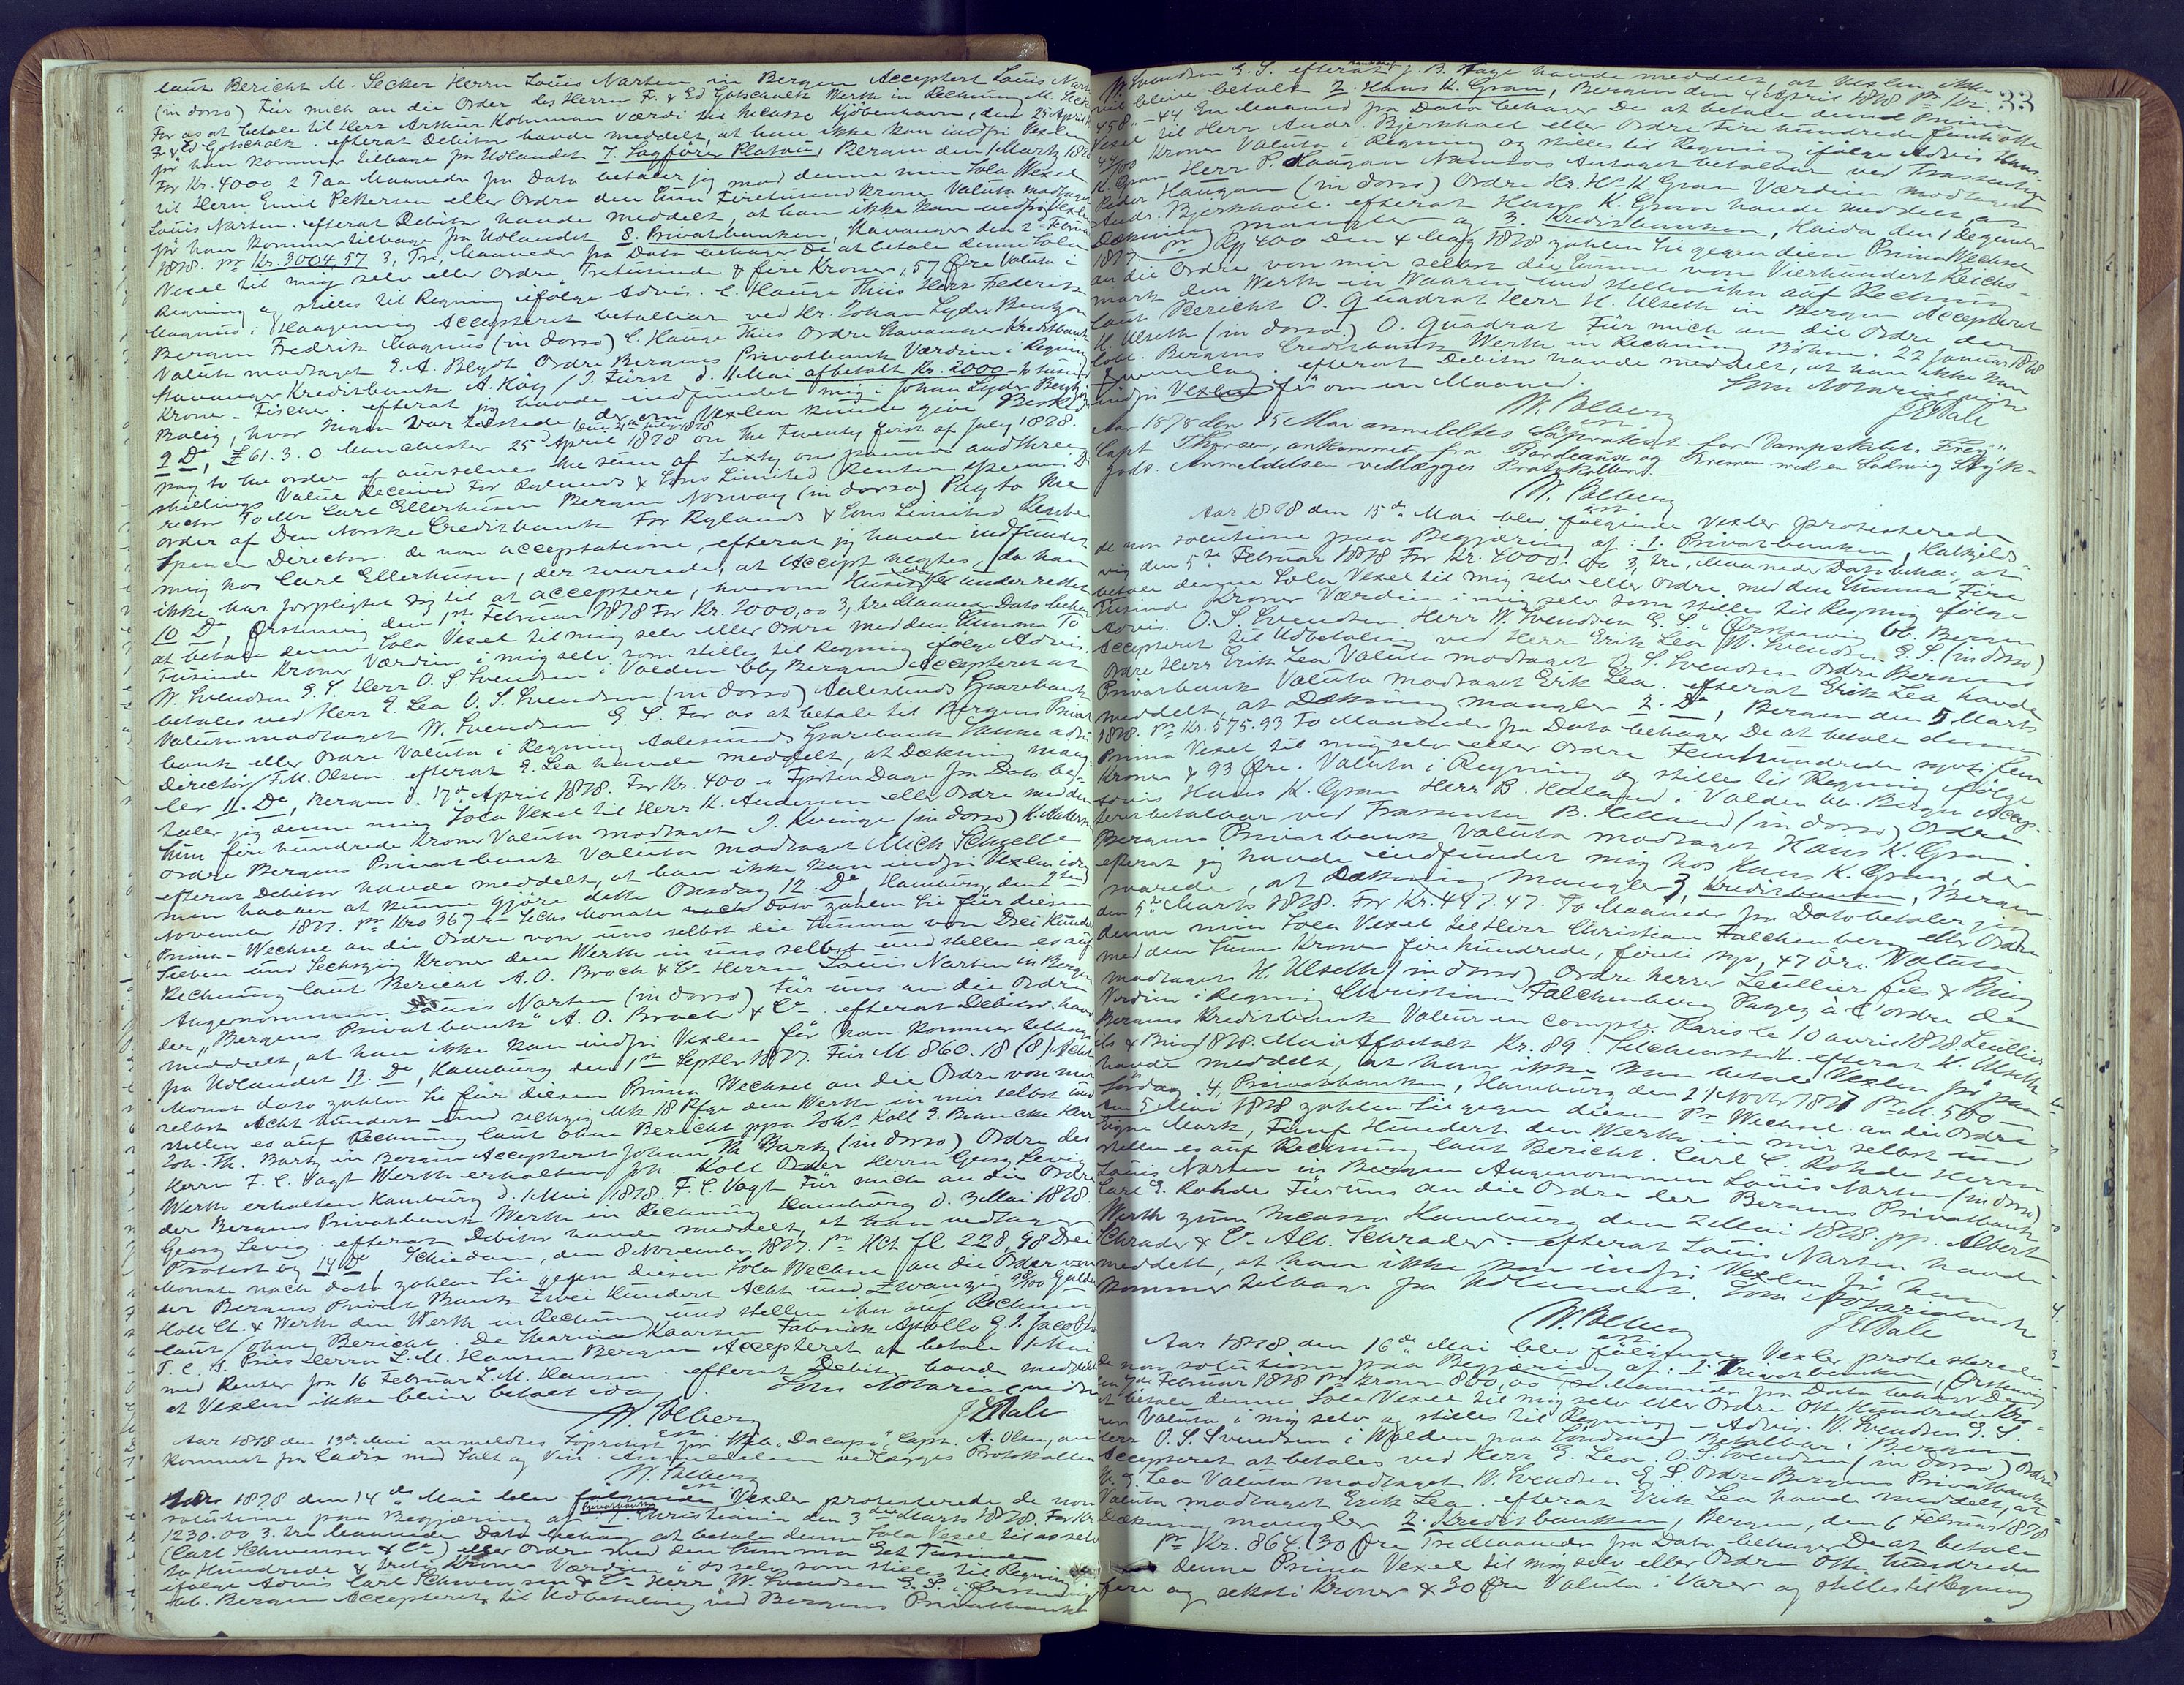 laut Bericht M. Secker Herrn Louis Narten in Bergen Acceptert Louis Narten
(in dorso) Für mich an die Order des Herrn Fr. & Ed Gotschalk Werth in Rechnung M. Secker
For os at betale til Herr Arthur Kohnmann Værdi til Incasso Kjöbenhavn, den 25 April
Fr & Ed Gotschalk. efterat Debitor havde meddelt, at han ikke kan indfri Vexlen
för han kommer tilbage fra Udlandet 7. Sagförer Platou, Bergen den 1 Marts 1878
For Kr. 4000 2 Taa Maaneder fra Dato betaler jeg mod denne min Sola Vexel
til Herrn Emil Pettersen eller Ordre den Sum Firetusend kroner Valuta modtaget
Louis Narten. efterat Debitor havde meddelt, at han ikke kan indfri Vexlen
för han kommer tilbage fra Udlandet 8. Privatbanken, Stavanger den 2 Februar
1878. pr Kr. 3004,57 3, Tre, Maaneder fra Dato behager De at betale denne Sola
Vexel til mig selv eller Ordre Tretusinde & fire Kroner, 57 Øre Valuta i
Regning og stilles til Regning ifölge Advis. C. Hauge Thiis Herr Federik
Magnus i Haugesund Accepteret betalbar ved Hr. Johan Lyder Bentzon
Bergen Fredrik Magnus (in dorso) C. Hauge Thiis Ordre Stavanger Kreditbank
Valuta modtaget E. A. Blydt Ordre Bergens Privatbank Værdien i Regning
Stavanger Kreditbank A. Kög / J. Fürst d. 11 Mai afbetalt Kr. 2000 - to tusind
Kroner - Fischer. efterat jeg havde indfundet mig i Johan Lyder Bentzons
Bolig, hvor Ingen var tilstede der om Vexlen kunde give Besked
9 Do, £61.3.0 Manchester 25th April 1878 on the Twenty first of July 1878.
pay to the order of ourselves the sum of Sixty one pounds and three
shillings Value Received For Rylands & Sons Limited Reuben Spencer Di-
rector To Mr Carl Ellerhusen Bergen Norway (in dorso) Pay to the
order of Den Norske Creditbank For Rylands & Sons Limited Reuben
Spencer Director. de non acceptatione, efterat jeg havde indfundet
mig hos Carl Ellerhusen, der svarede, at Accept negtes, da han
ikke har forpligtet sig til at acceptere, hvorom Huset er underrettet
10 Do, Örstenvig den 1ste Februar 1878 For Kr. 2000,00 3, tre Maaneder Dato behag
at betale denne Sola Vexel til mig selv eller Ordre med den Summa To
Tusinde Kroner Værdien i mig selv, som stilles til Regning ifölge Advis.
W. Svendsen E. S. Herr O. S. Svendsen i Volden bby Bergen Accepteret at
betales ved Herr E. Lea O. S. Svendsen (in dorso) Aalesunds Sparebank
Valuta modtaget W. Svendsen E. S. For os at betale til Bergens Privat
bank eller Ordre Valuta i Regning Aalesunds Sparebank Vanne adm
Directör / F. M. Olsen. efterat E. Lea havde meddelt, at Dækning mang-
ler 11. Do, Bergen d. 17de April 1878. For Kr. 400 - Fjorten Dage fra Dato be-
taler jeg denne min Sola Vexel til Herr K. Andersen eller Ordre med den
Sum fire hundrede Kroner Valuta modtaget J. Kvinge (in dorso) K. Andersen
ordre Bergens Privatbank Valuta modtaget Mich Schjelle
efterat Debitor havde meddelt, at han ikke kan indfri Vexlen idag
men haaber at kunne gjöre dette Onsdag 12. Do, Hamburg, den 9ten
November 1877. pr Kro 367 - Sechs Monate nach Dato zahlen Sie für diesen
Prima-Wechsel an die Ordre von uns selbst die Summa von Drei Hundert
Sieben und Sechszig Kronen den Werth in uns selbst und stellen es auf
Rechnung laut Bericht A. O. Broch & Co Herrn Louis Narten in Bergen
Angenommen Louis Narten (in dorso) Für uns an die Ordre
der „Bergens Privatbank" A. O. Broch & Co. efterat Debitor havde
meddelt, at han ikke kan indfri Vexlen för han kommer tilbage
fra Udlandet 13. Do, Hamburg den 1ste Septbr 1877. Für M 860.18 (8) Acht
Monat dato zahlen Sie für diesen Prima Wechsel an die Ordre von mir
selbst Acht hundert und sechszig Mk 18 Pfge den Werth in mir selbst und
stellen es auf Rechnung laut ohne Bericht ppa Johs Koll E. Behncke Herr
Joh. Th. Bartz in Bergen Accepteret Johan Th Bartz (in dorso) Ordre des
Herrn F. C. Vogt Werth erhalten Joh. Koll Order Herrn Georg Levig
Werth erhalten Hamburg d. 1 Mai 1878. F. C. Vogt Für mich an die Ordre
der Bergens Privatbank Werth in Rechnung Hamburg d. 3 Mai 1878.
Georg Levig. efterat Debitor havde meddelt, at han vedtog
Protest og 14 Do, Schiedam, den 8 November 1877. Pr HCt fl 228,98 Drei
Monate nach dato zahlen Sie gegen diesen Sola Wechsel an die Order von
der Bergens Privat Bank Zwei Hundert Acht und Zwanzig 98/100 Gulden
Holl Ct. & Werth den Werth in Rechnung und stellen ihn auf Rechnung
laut / ohne Bericht. De Stearine Kaarsen Fabriek Apollo G. J. Jacobs
T. C. A. Pries Herrn L. M. Hansen Bergen Accepteret at betale 1 Mai
med Renter fra 16 Februar L. M. Hansen. efterat Debitor havde meddelt
at Vexlen ikke bliver betalt idag. Som Notarialvidne
W. Colberg J E Dale
Aar 1878 den 13de Mai anmeldtes Söprotest for Skib. „Dacapo", Capt. A. Olsen, an-
kommet fra Cadix med Salt og Vin. Anmeldelsen vedlægges Protokollen
W. Colberg
Aar 1878 den 14de Mai blev følgende Vexler protesterede de non
solutione paa Begjæring af: Privatbanken 1. Christiania den 3die Marts 1878. For Kr
1230.00 3. tre Maaneder Dato behag at betale denne Sola Vexel til os selv
(Carl Schwensen & Co) eller Ordre med den Summa Eet Tusinde
to Hundrede & treti Kroner Værdien i os selv som stilles til Regning
ifølge Advis Carl Schwensen & Co Herr W. Svendsen E. S. i Ørstenvig
bb. Bergen Accepteret til Udbetaling ved Bergens Privatbank
33
W. Svendsen E. S. efterat J. B. Fage havde meddelt, at Vexlen ikke
vil blive betalt 2. Hans K. Gran, Bergen den 4 April 1878 Pr Kr.
458 - 44 En Maaned fra Dato behager De at betale denne Prima
Vexel til Herr Andr. Bjerkhoel eller Ordre Fire hundrede femti otte
44/100 Kroner Valuta i Regning og stilles til Regning ifölge Advis Hans
K. Gran Herr P. Haugan Namsos Antaget betalbar ved Trassenten
Peder Haugan (in dorso) Ordre Hr. Hs K. Gran Værdien modtaget
Andr. Bjerkhoel. efterat Hans K. Gran havde meddelt, at
Dækning mangler og 3. Kreditbanken, Haida den 1 Dezember
1877 pr Rp 400 Den 4 Mai 1878 zahlen Sie gegen diesen Prima Wechsel
an die Ordre von mir selbst die Summe von Vierhundert Reichs-
mark den Werth in Waaren und stellen ihn auf Rechnung
laut Bericht O. Quadrat Herr H. Ulseth in Bergen Accepteret
H. Ulseth (in dorso) O. Quadrat Für mich an die Ordre der
Löbl. Bergens Creditbank Werth in Rechnung Böhm. 22 Januar 1878
efterat Debitor havde meddelt, at han ikke kan
indfri Vexlen för om en Maaned. Som Notarialvidne
W. Colberg J E Dale
Aar 1878 den 15 Mai anmeldtes Söprotest for Dampskibet „Frey",
Capt Thorsen, ankommet fra Bordeaux og Bremen med en Ladning Styk-
gods. Anmeldelsen vedlægges Protokollen.
W. Colberg
Aar 1878 den 15de Mai blev følgende Vexler protesterede
de non solutione paa Begjæring af: 1. Privatbanken, Kalkjelds-
vig den 5te Februar 1878 For Kr. 4000.00 3, tre, Maaneder Dato behag at
betale denne Sola Vexel til mig selv eller Ordre med den Summa Fire
Tusinde Kroner Værdien i mig selv som stilles til Regning ifölge
Advis. O. S. Svendsen Herr W. Svendsen E. S. i Ørstenvig bb. Bergen
Accepteret til Udbetaling ved Herr Erik Lea W. Svendsen E. S. (in dorso)
Ordre Herr Erik Lea Valuta modtaget O. S. Svendsen Ordre Bergens
Privatbank Valuta modtaget Erik Lea. efterat Erik Lea havde
meddelt, at Dækning mangler 2. Do, Bergen den 5 Marts
1878. Pr Kr. 575.93 To Maaneder fra Dato behager De at betale denne
Prima Vexel til mig selv eller Ordre Femhundrede sytti fem
Kroner & 93 Øre. Valuta i Regning og stilles til Regning ifölge
Advis Hans K. Gran Herr B. Helland i Valden bb. Bergen Accep-
teres betalbar ved Trassenten B. Helland (in dorso) Ordre
Bergens Privatbank Valuta modtaget Hans K. Gran.
efterat jeg havde indfundet mig hos Hans K. Gran, der
svarede, at Dækning mangler 3, Kreditbanken, Bergen
den 5te Marts 1878. For Kr. 447.47. To Maaneder fra Dato betaler jeg
denne min Sola Vexel til Herr Christian Falchenberg eller Ordre
med den Sum Kroner firehundrede, firti syv, 47 Öre. Valuta
modtaget H. Ulseth (in dorso) Ordre Herrer Leullier fils & Bing
Værdien i Regning Christian Falchenberg Payez à l'ordre de
Bergens Kreditbank Valeur en compte. Paris le 10 avril 1878. Leullier
fils & Bing 8/8. Mai Afbetalt Kr. 89. efterat H. Ulseth
havde meddelt, at han ikke kan betale Vexlen för paa
Lördag 4, Privatbanken, Hamburg den 21 Novbr 1877 Pr M. 500 -
Am 5 Mai 1878 zahlen Sie gegen diesen Pr Wechsel an die Ordre
Eigne Mark, Fünf Hundert den Werth in mir selbst und
stellen es auf Rechnung laut Bericht. Carl C. Rohde Herrn
Louis Narten in Bergen Angenommen Louis Narten (in dorso)
Carl C. Rohde Für uns an die Ordre der Bergens Privatbank
Werth zum Incasso Hamburg den 2 Mai 1878. pp. Albert
Schrader & Co. Alb. Schrader. efterat Louis Narten havde
meddelt, at han ikke kan indfri Vexlen för han
kommer tilbage fra Udlandet. Som Notarialvidne
W. Colberg J E Dale
Aar 1878 den 16de Mai blev følgende Vexler protesterede
de non solutione paa Begjæring af: 1. Privatbanken, Örstenvig
den 7de Februar 1878 pr Kroner 800,00 Tre Maaneder fra Dato behager De
at betale denne Sola Vexel til mig selv eller Ordre Otte Hundrede Kro-
ner Valuta i mig selv og stilles til Regning - Advis. W. Svendsen E. S.
Herr O. S. Svendsen i Wolden paa Söndmör Betalbar i Bergen
Accepteret at betales ved Herr E. Lea. O. S. Svendsen (in dorso) Ordre
Hr E. Lea Valuta modtaget W. Svendsen E. S. Ordre Bergens Privatbank
Valuta modtaget Erik Lea. efterat Erik Lea havde meddelt, at
Dækning mangler 2. Kreditbanken, Bergen, den 6 Februar 1878
Pr Kr. 864.30 Øre Tre Maaneder fra Dato behager De at betale
denne Prima Vexel til mig selv eller Ordre Otte hundrede
fire og seksti Kroner & 30 Øre Valuta i Varer og stilles til Regning